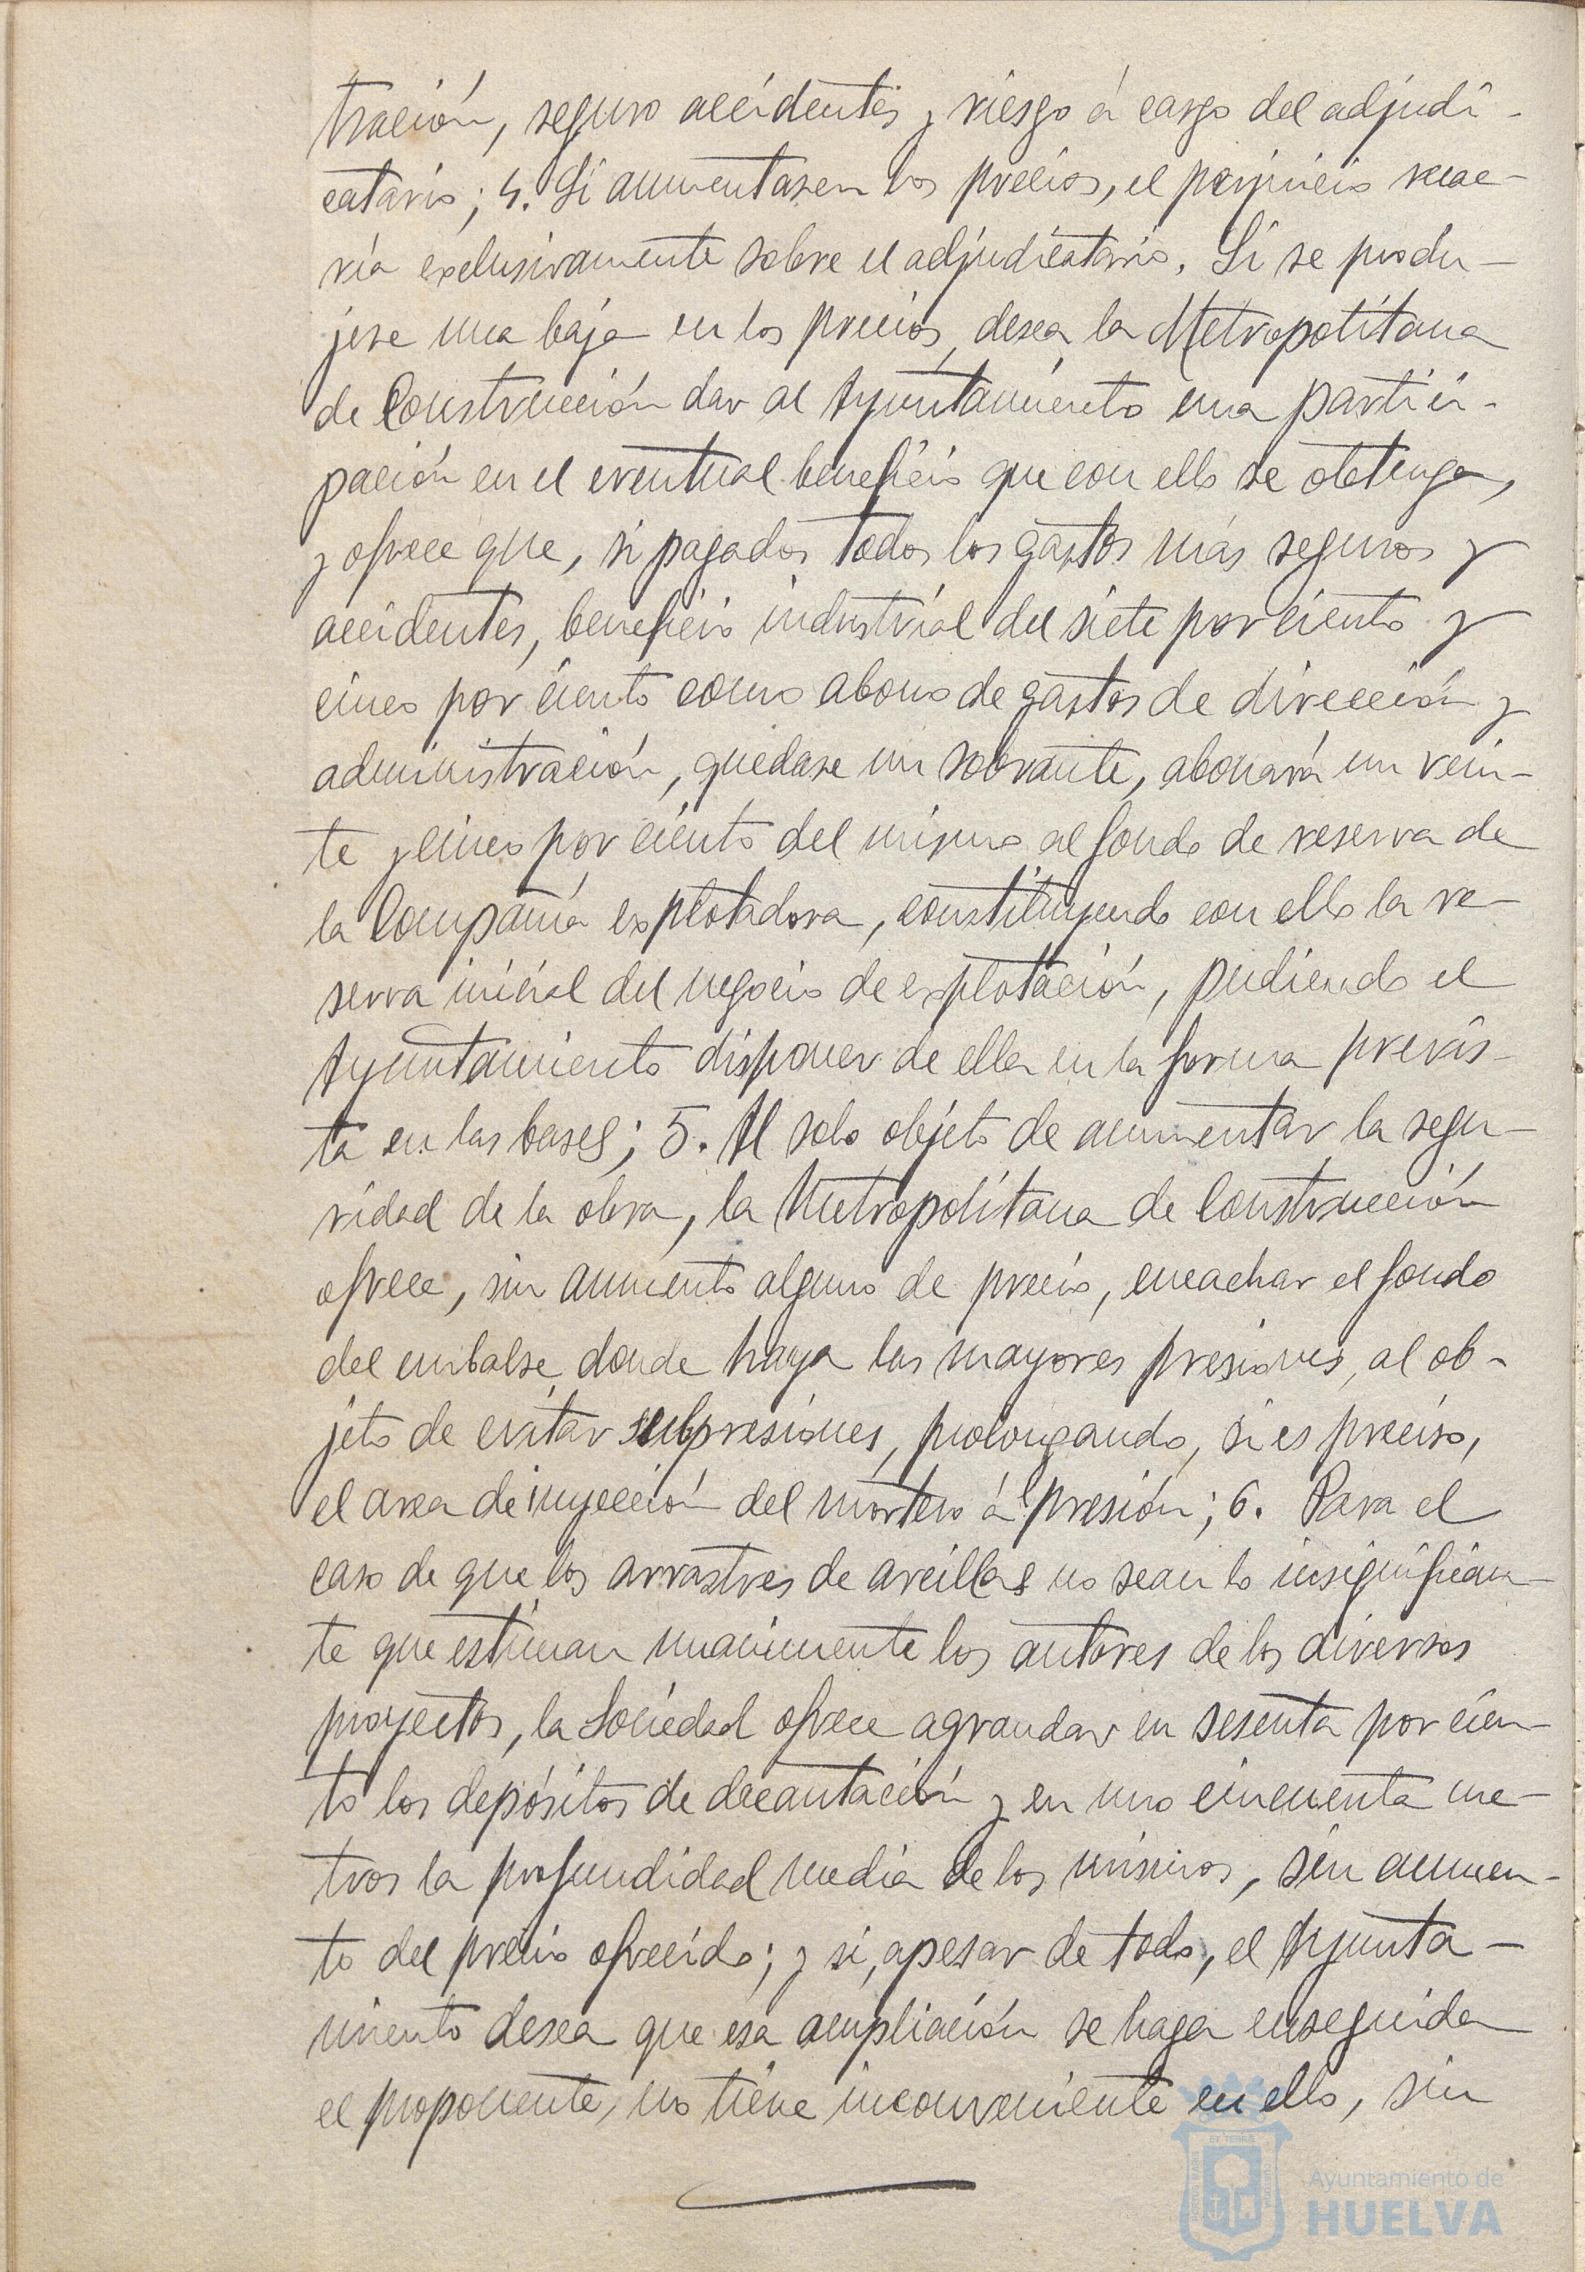 tración, seguro accidentes y riesgo á cargo del adjudi-
catario; 4. Si aumentasen los precios, el perjuicio recae-
ría exclusivamente sobre el adjudicatario. Si se produ-
jese una baja en los precios, desea la Metropolitana
de Construcción dar al Ayuntamiento una partici-
pación en el eventual beneficio que con ello se obtenga,
y ofrece que, si pagados todos los gastos más seguros y
accidentes, beneficio industrial del siete por ciento y
cinco por ciento como abono de gastos de dirección y
administración, quedase un sobrante, abonará un vein-
te y cinco por ciento del mismo al fondo de reserva de
la Compañía explotadora, constituyendo con ello la re-
serva inicial del negocio de explotación, pudiendo el
Ayuntamiento disponer de ella en la forma previs-
ta en las bases; 5. Al solo objeto de aumentar la segu-
ridad de la obra, la Metropolitana de Construcción
ofrece, sin aumento alguno de precio, encachar el fondo
del embalse donde haya las mayores presiones, al ob-
jeto de evitar subpresiones, prolongando, si es preciso,
el area de inyección del mortero á presión; 6. Para el
caso de que los arrastres de arcillas no sean lo insignifican-
te que estiman unanimente los autores de los diversos
proyectos, la Sociedad ofrece agrandar en sesenta por cien-
to los depósitos de decantación y en uno cincuenta me-
tros la profundidad media de los mismos, sin aumen-
to del precio ofrecido; y si, apesar de todo, el Ayunta-
miento desea que esa ampliación se haga enseguida
el proponente, no tiene inconveniente en ello, sin
Ayuntamiento de
HUELVA